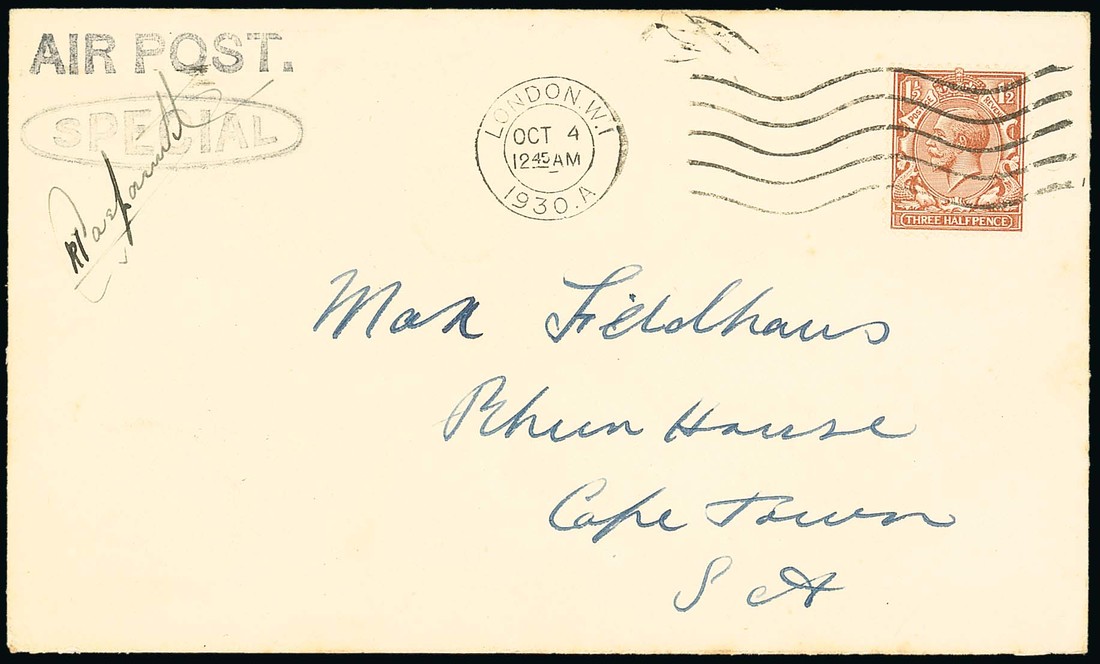 AIR POST.
SPECIAL
LONDON.W.1
OCT 4
12.45 AM
1930.A
1½ 1½
POSTAGE REVENUE
THREE HALFPENCE
Max Fieldhaus
Rhun House
Cape Town
S A